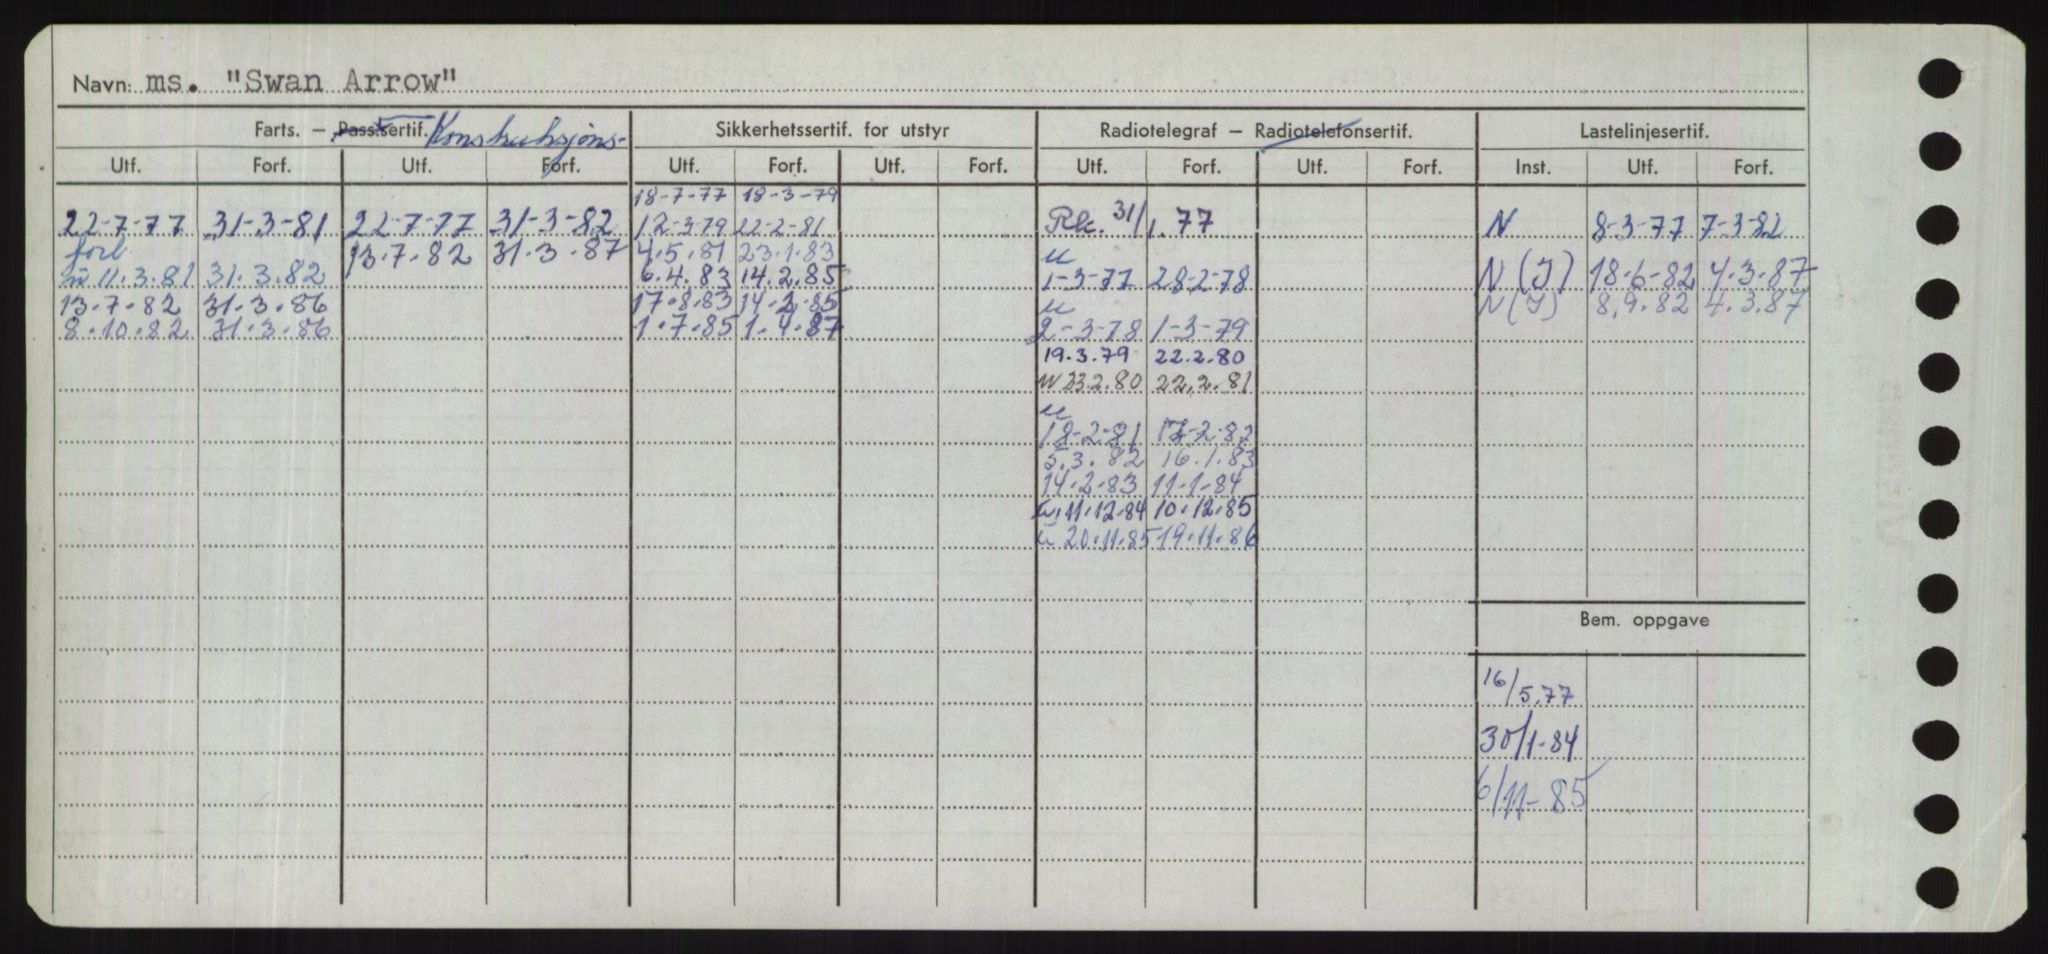 Navn: ms. "Swan Arrow"
Farts. – Pass.sertif. Konstruksjons- Sikkerhetssertif. for utstyr Radiotelegraf – Radiotelefonsertif. Lastelinjesertif.
Utf. Forf. Utf. Forf. Utf. Forf. Utf. Forf. Utf. Forf. Utf. Forf. Inst. Utf. Forf.
18-7-77 18-3-79
22-7-77 31-3-81 22-7-77 31-3-82 12-3-79 22-2-81 Rk. 31/1.77 N 8-3-77 7-3-82
forl 13.7.82 31.3.87 4.5.81 23.1.83 u
ū 11.3.81 31.3.82 6.4.83 14.2.85 1-3-77 28-2-78 N (I) 18-6-82 4-3-87
13.7.82 31.3.86 17.8.83 14.2.85 u N (I) 8.9.82 4.3.87
8.10.82 31.3.86 1.7.85 1.4.87 2-3-78 1-3-79
19.3.79 22.2.80
N 23 2.80 22.2.81
u
18-2-81 17-2-82
5.3.82 16.1.83
14.2.83 11.1.84
u. 11.12.84 10.12.85
u 20.11.85 19.11.86
Bem. oppgave
16/5.77
30/1-84
6/11-85